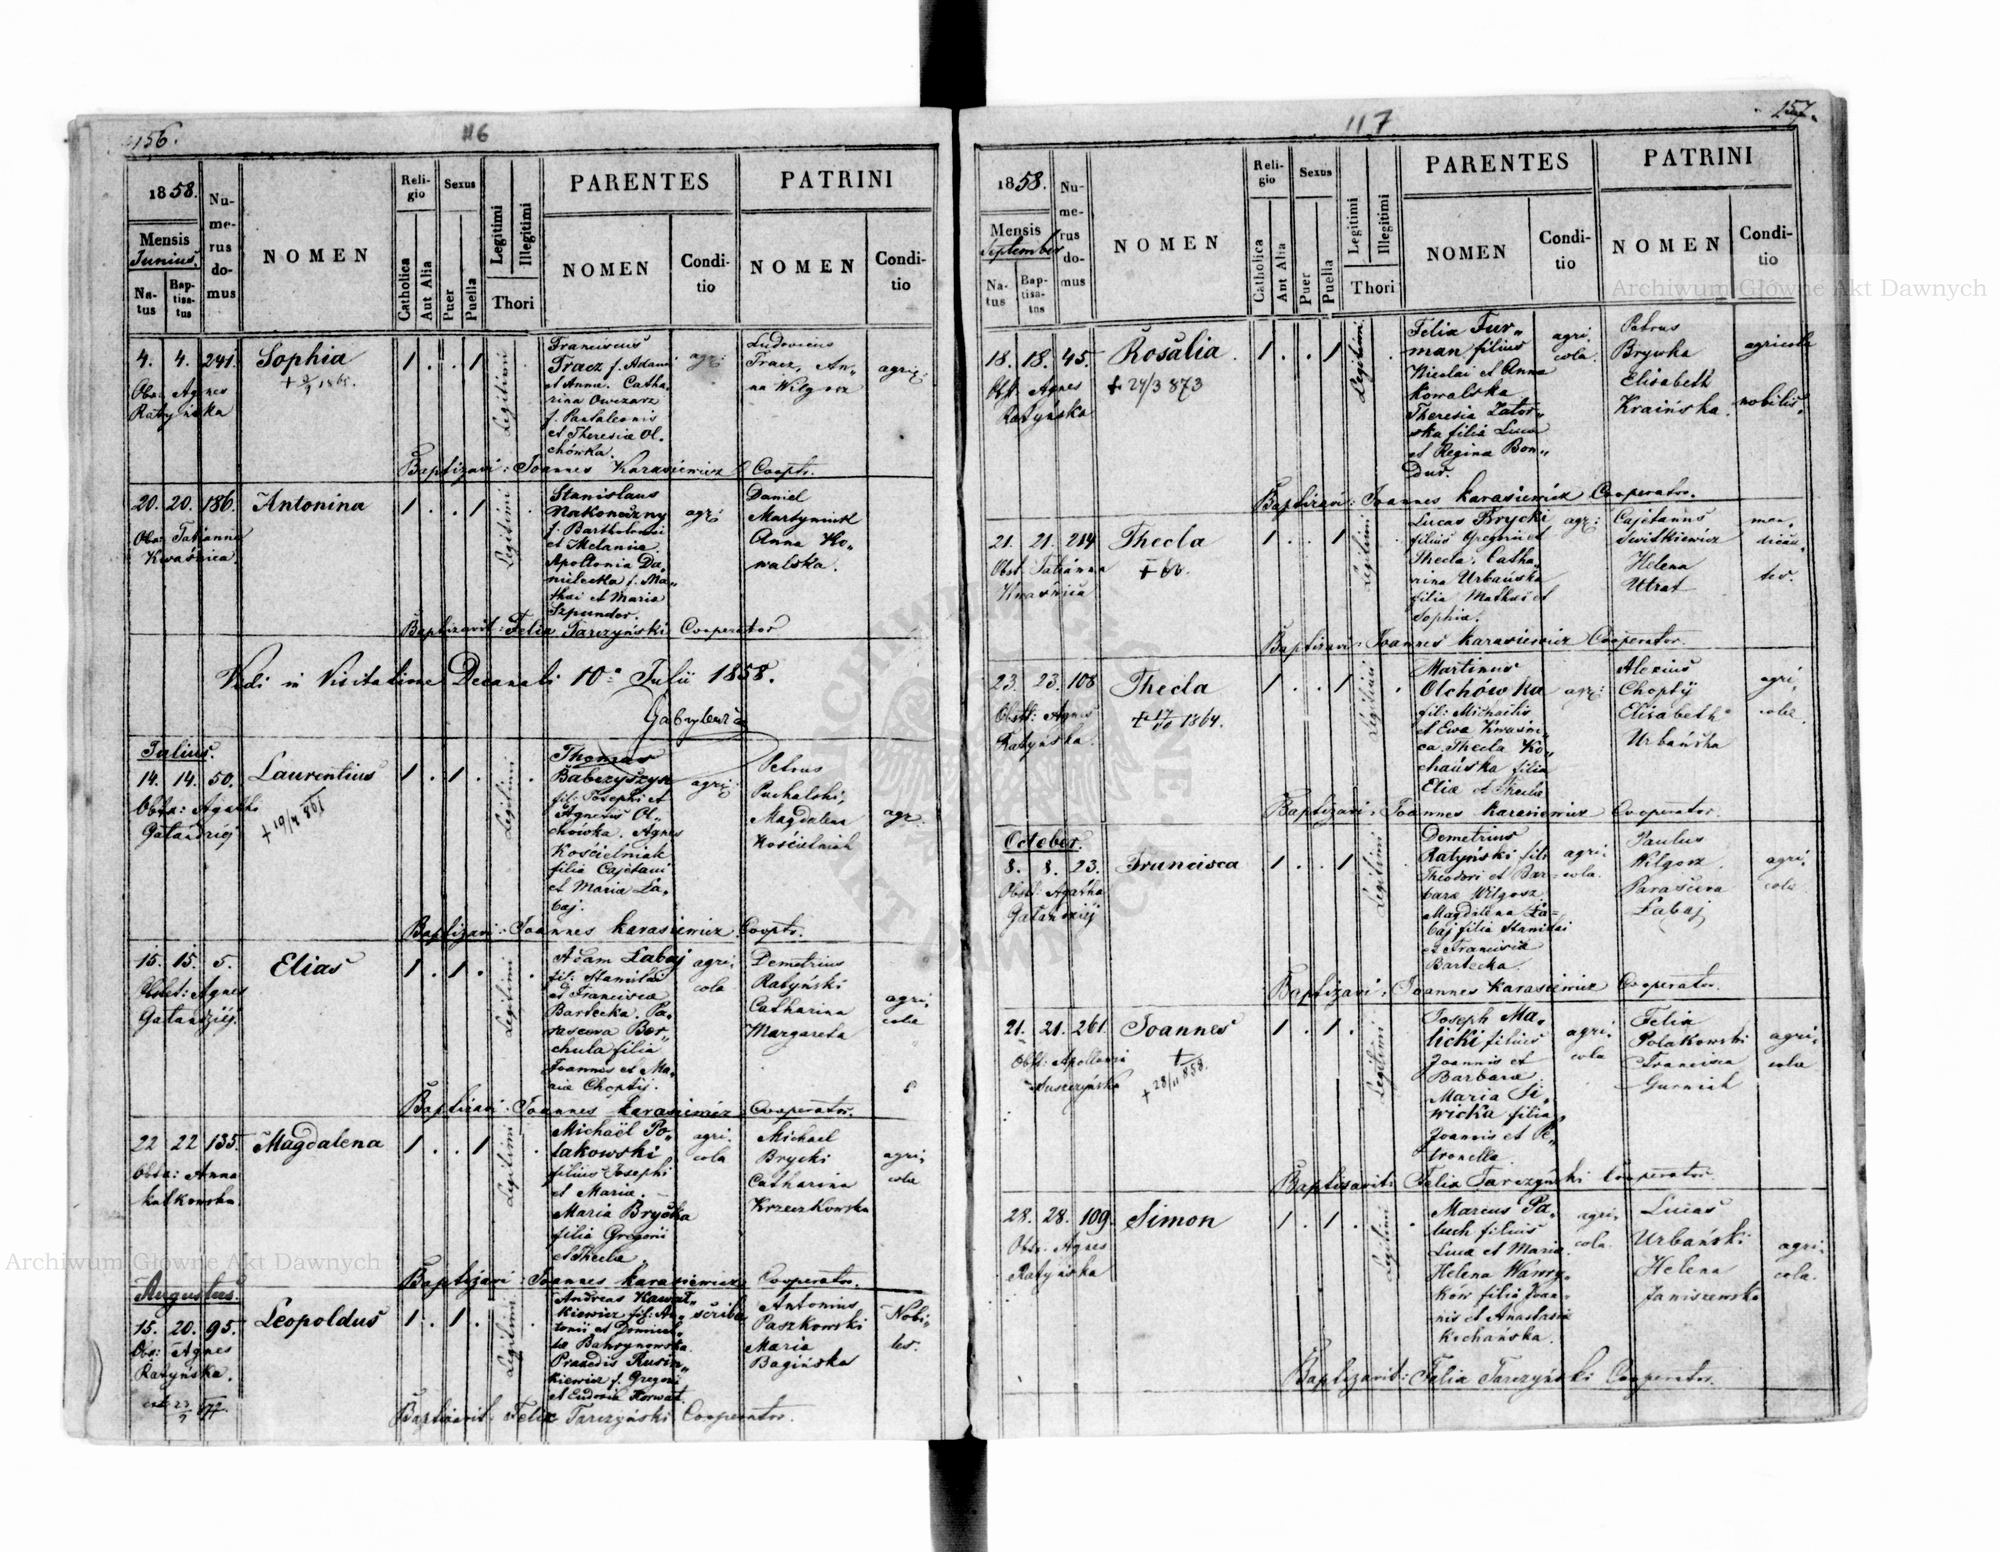 156.
116
1858.
Mensis
Junius.
Na-
tus
Bap-
tisa-
tus
Nu-
me-
rus
do-
mus
NOMEN
Reli-
gio
Catholica
Aut Alia
Sexus
Puer
Puella
Legitimi
Illegitimi
Thori
PARENTES
NOMEN
Condi-
tio
PATRINI
NOMEN
Condi-
tio
4. 4. 241. Sophia
Obs: Agnes
Ratyńska
1 . . 1
Legitimi
Franciscus
Tracz f. Adami
et Anna. Catha,
rina Owczarz
f. Pantaleonis
et Theresiæ Ol-
chówka.
agr:
Ludovicus
Tracz, An-
na Wilgosz
agric:
Baptizavi: Joannes Karasiewicz Coopt.
20. 20. 186. Antonina
Obs: Tatianna
Kwaśnica.
1 . . 1
Legitimi
Stanislaus
Nakoneczny
f. Bartholomei
et Melaniæ.
Apollonia Da,
nilecka f. Ma,,
thai et Maria
Szpunder.
agr:
Daniel
Martyniuk
Anna Ko,
walska.
Baptizavit: Felix Tarczyński Cooperator
Vidi in Visitatione Decanali 10a Julii 1858.
Julius.
14. 14. 50. Laurentius
Obst: Agatha
Gałandziej
1 . 1 .
Legitimi
Thomas
Babczyszyn
fil: Josephi et
Agnetis Ol,,
chówka. Agnes
Kościelniak
filia Cajetani
et Maria Ła,
baj.
agri:
Petrus
Puchalski,
Magdalena
Kościelniak
agr.
Baptizavi: Joannes Karasiewicz Coopt.
15. 15. 5. Elias
Obst: Agnes
Gałandziej.
1 . 1 .
Legitimi
Adam Łabaj
fil: Stanislai
et Francisca
Bartecka. Pa,
rasceva Bor,,
chula filia
Joannis et Ma,
riæ Choptij.
agri,
cola
Demetrius
Ratyński
Catharina
Margareta
agri,
cola
Baptizavi: Joannes Karasiewicz Cooperator.
22 22 135. Magdalena
Obst: Anna
Kulkowska.
1 . . 1
Legitimi
Michaël Po,,
lakowski
filius Josephi
et Maria.
Maria Brycka
filia Gregorii
et Thecla
agri,
cola
Michael
Brycki
Catharina
Krzeczkowska
agri,
cola
Baptizavi: Joannes Karasiewicz Cooperator.
Augustus.
15. 20. 95. Leopoldus
Obs: Agnes
Ratyńska.
1 . 1 .
Legitimi
scriba
Antonius
Paszkowski
Maria
Bagińska
Nobi,
les.
Baptizavit: Felix Tarczyński Cooperator.
157.
117
1858.
Mensis
September
Na-
tus
Bap-
tisa-
tus
Nu-
me-
rus
do-
mus
NOMEN
Reli-
gio
Catholica
Aut Alia
Sexus
Puer
Puella
Legitimi
Illegitimi
Thori
PARENTES
NOMEN
Condi-
tio
PATRINI
NOMEN
Condi-
tio
18. 18. 45. Rosalia.
Obst: Agnes
Ratyńska
+ 24/3 873
1 . . 1
Legitimi
Felix Fur,,
man filius
Nicolai et Anna
Kowalska
Theresia Zator,,
ska filia Luca
et Regina Bon,,
dud.
agri,
cola.
Petrus
Brywka
Elisabeth
Kraińska.
agricola
nobilis.
Baptizavi: Joannes Karasiewicz Cooperator.
21. 21. 214 Thecla
Obst: Tatianna
Kwaśnica
1 . . 1
Legitimi
Lucas Brycki
filius Gregorii et
Thecla. Catha,
rina Urbańska
filia Mathæi et
Sophia.
agr:
Cajetanus
Switkiewicz
Helena
Utrat
men,
dican,
tes.
Baptizavi: Joannes Karasiewicz Cooperator.
23. 23. 108 Thecla
Obst: Agnes
Ratyńska.
1 . . 1
Legitimi
Martinus
Olchówka
fil: Michaelis
et Ewa Kwaśni,
ca. Thecla Ko,
chańska filia
Eliæ et Thecla
agr:
Alexius
Choptÿ
Elisabeth
Urbańska
agri,
colæ.
Baptizavi: Joannes Karasiewicz Cooperator.
October.
8. 8. 23. Francisca
Obst: Agatha
Gałandziej
1 . . 1
Legitimi
Demetrius
Ratyński fil:
Theodori et Bar-
bara Wilgosz
Magdalena Ła-
baj filia Stanislai
et Francisca
Bartecka.
agri,
cola.
Paulus
Wilgosz.
Parascena
Łabaj
agri,
cola
Baptizavi: Joannes Karasiewicz Cooperator.
21. 21. 261. Joannes
Obst: Apollonia
+ 28/11 858.
1 . 1 .
Legitimi
Joseph Ma,
licki filius
Joannis et
Barbaræ
Maria Si,
wicka filia
Joannis et Pe,
tronella.
agri,
cola
Felix
Polakowski
Francisca
Gurniak
agri,
cola
Baptizavit: Felix Tarczyński Cooperator.
28. 28. 109. Simon
Obst: Agnes
Ratyńska
1 . 1 .
Legitimi
Marcus Pa,
luch filius
Luca et Maria.
Helena Wawry,
ków filia Joan,
nis et Anastasia
Kochańska.
agri,
cola.
Lucas
Urbański
Helena
Janiszewska
agri,
cola.
Baptizavit: Felix Tarczyński Cooperator.
Archiwum Główne Akt Dawnych
Archiwum Główne Akt Dawnych